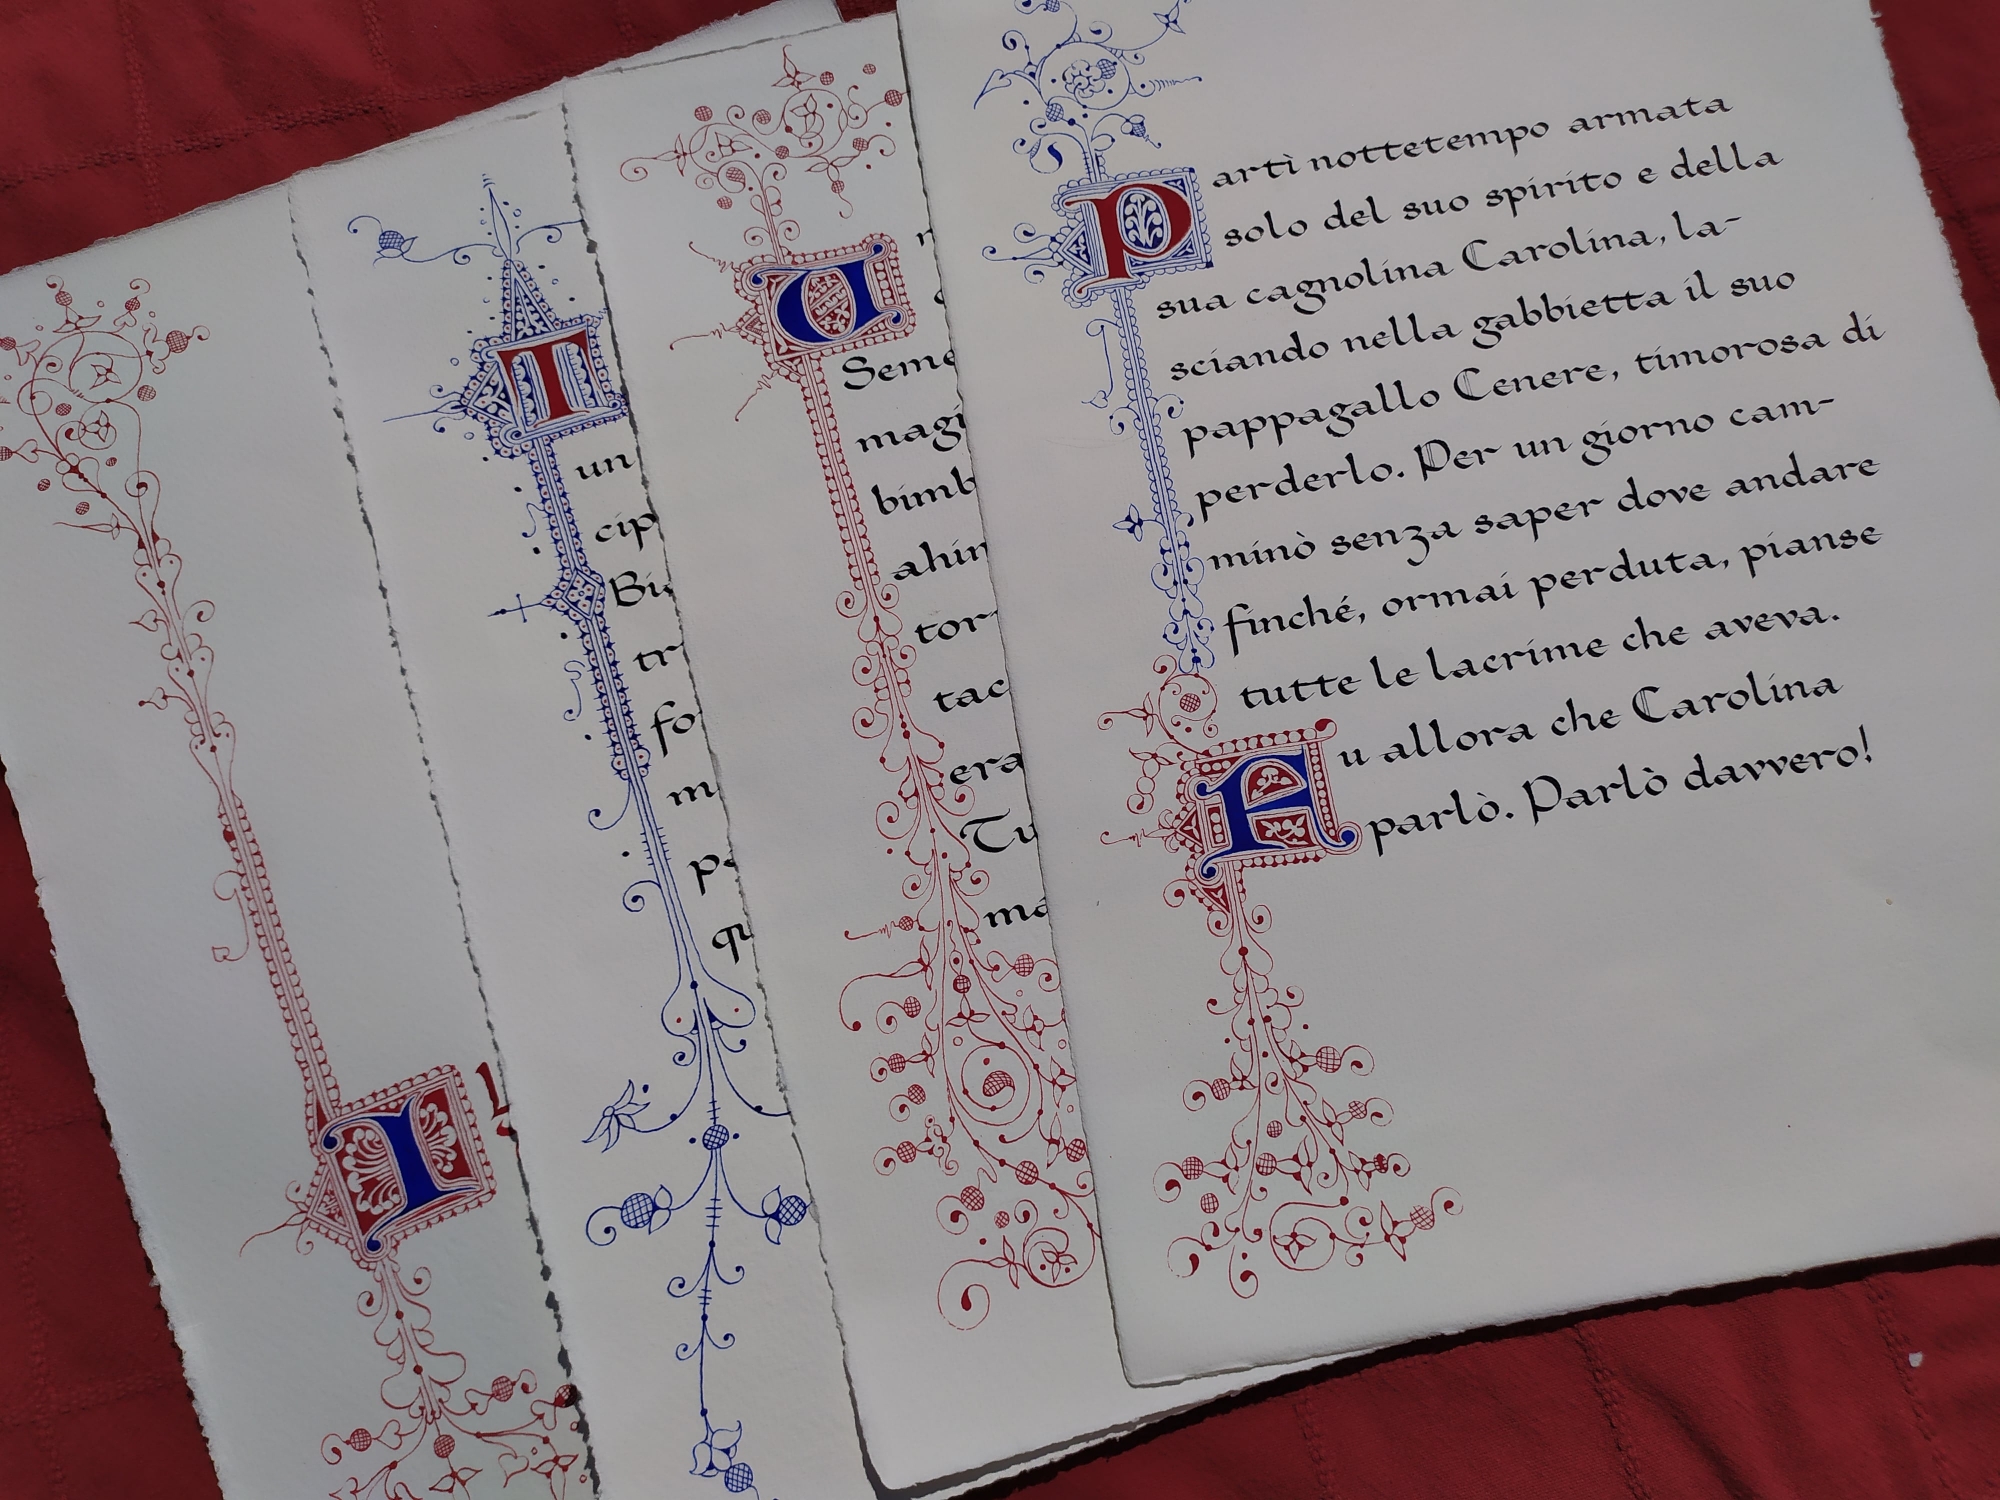 I
I
un
cip
tr
fo
m
qu
U
Seme
magi
bimb
ahim
tor
tac
era
Tu
ma
Partì nottetempo armata
solo del suo spirito e della
sua cagnolina Carolina, la-
sciando nella gabbietta il suo
pappagallo Cenere, timorosa di
perderlo. Per un giorno cam-
minò senza saper dove andare
finché, ormai perduta, pianse
tutte le lacrime che aveva.
Fu allora che Carolina
parlò. Parlò davvero!